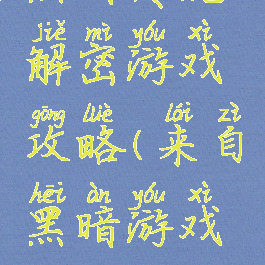 jiě mì yóu xì
解密游戏
gōng lüè lái zì
攻略(来自
hēi àn yóu xì
黑暗游戏